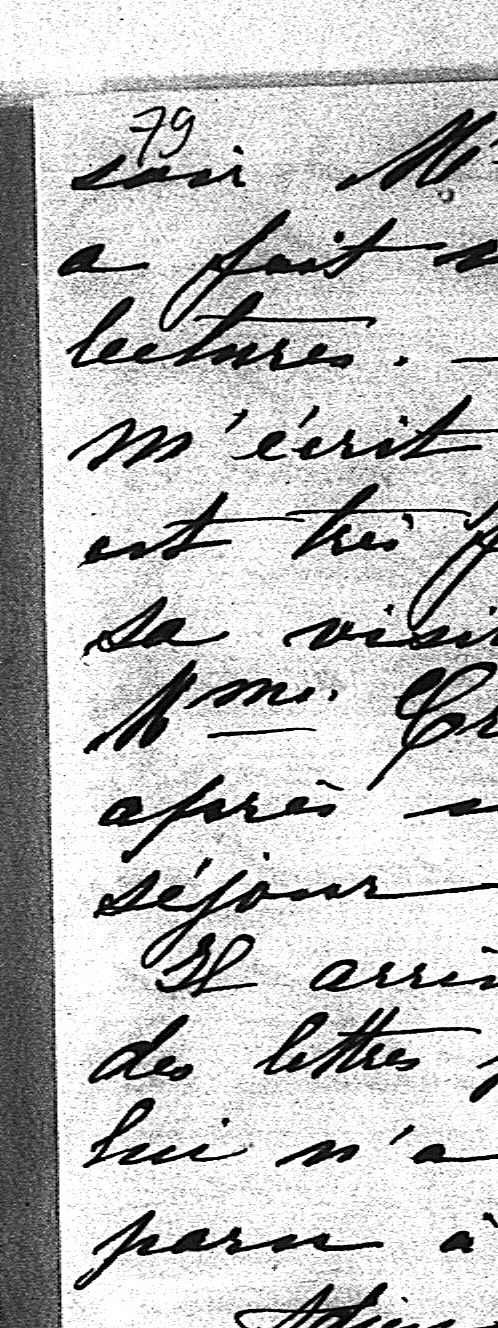 79
soir M
a fait
lectures. —
m'écrit
est très f
sa visi
Mme. Cr
après
séjour
Il arri
des lettres
lui n'a
paru à